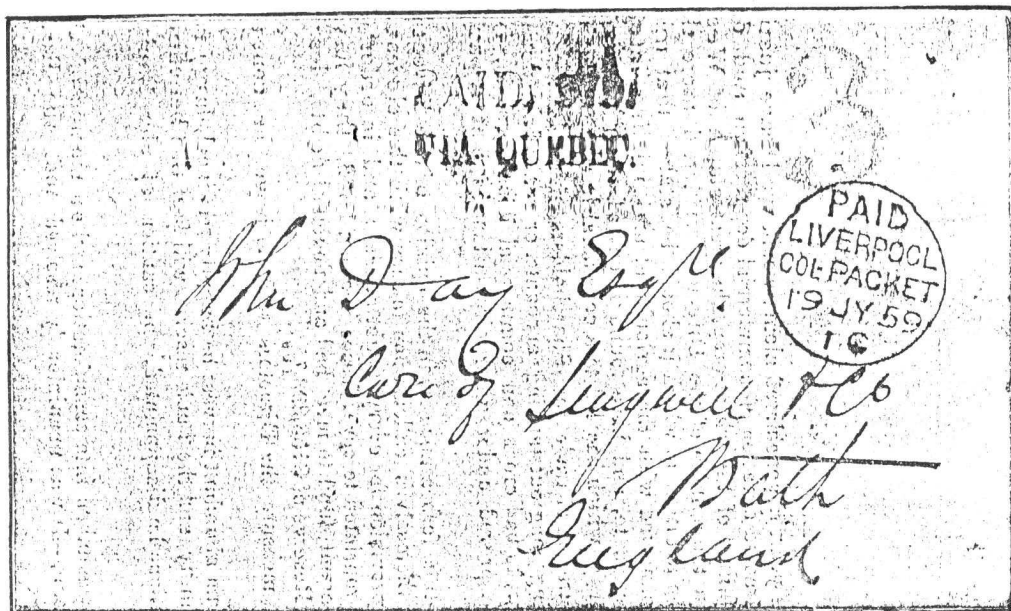 PAID,
VIA QUEBEC.
3
PAID
LIVERPOOL
COL-PACKET
19 JY 59
John Day Esqre.
Care of & Co
Bath
England